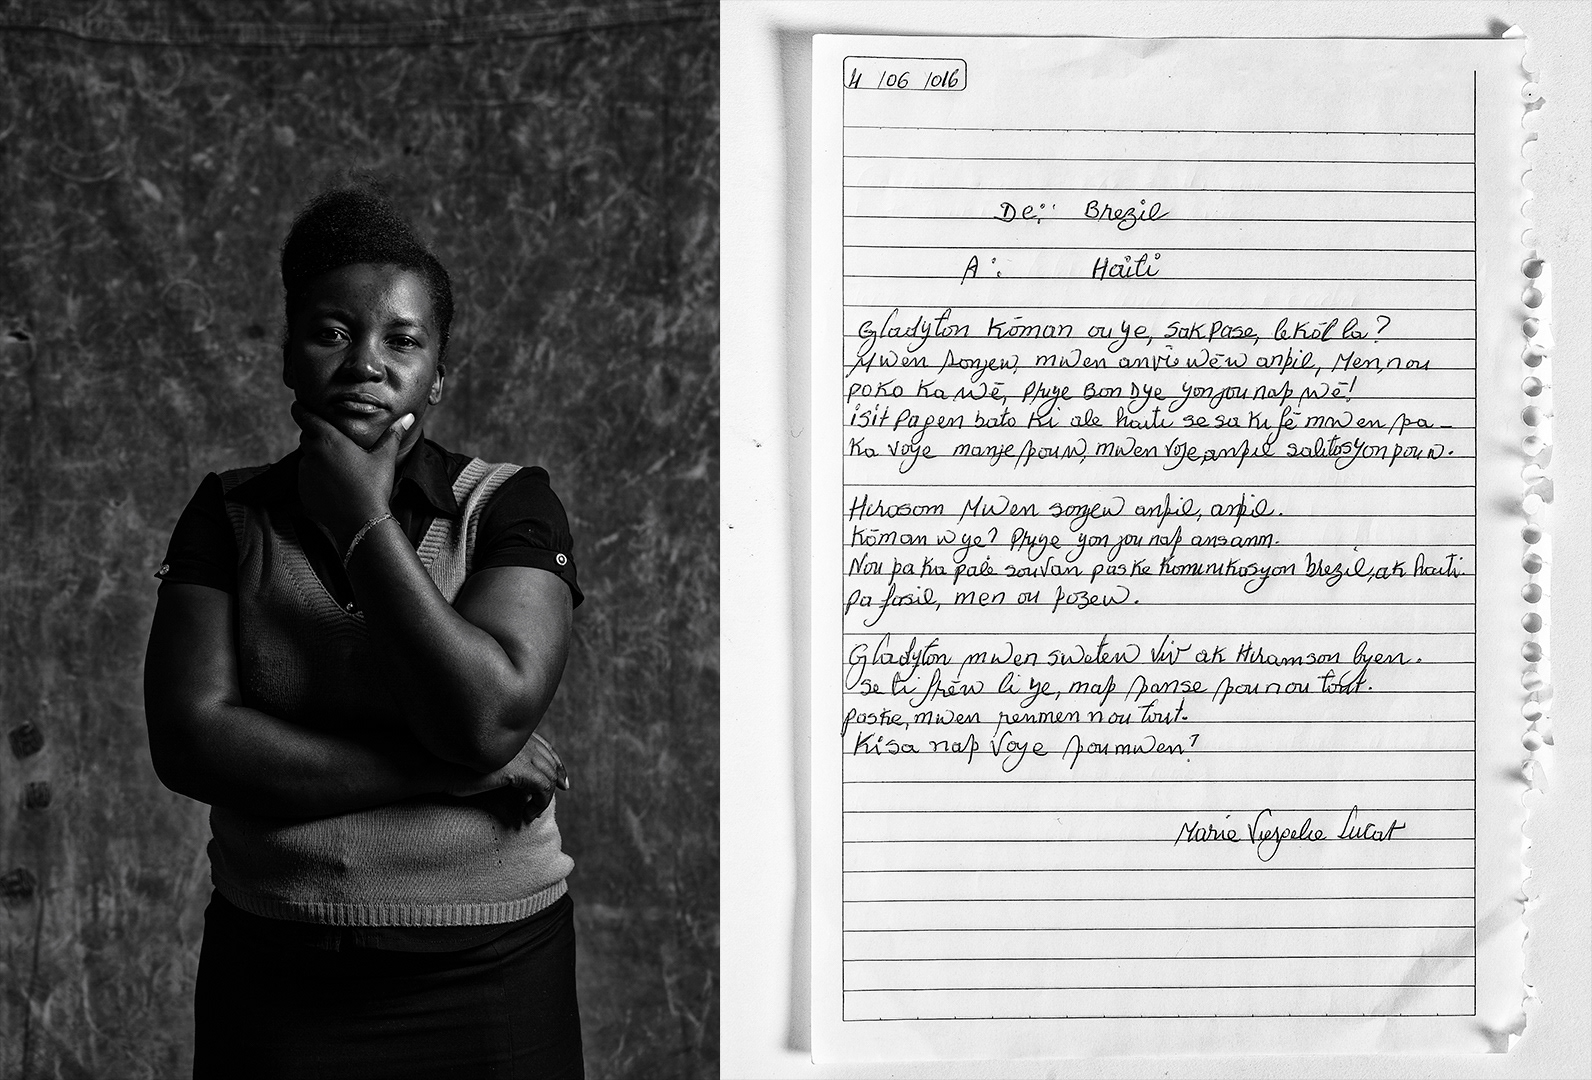 4 /06 /016
De: Brezil
A: Haïti
Gladyton Kōman ou ye, sak pase, lekōl la?
Mwen sonjew, mwen anvi wēw anpil, Men, nou
poko ka wē, Priye Bon Dye yon jou nap wē!
isit pa gen bato ki ale haiti se sa ki fē mwen pa-
ka voye manje pou w, mwen voye anpil salitasyon pou w.
Mwen sonjew anpil, anpil.
Kōman w ye? Priye yon jou nap ansanm.
Nou pa ka pale souvan paske komunikasyon brezil, ak haiti.
pa fasil, men ou pozew.
Gladyton mwen swetew viv ak Hiramson byen.
se ti frēw li ye, map panse pou nou tout.
paske, mwen renmen nou tout.
Kisa nap voye pou mwen?
Marie Lucat